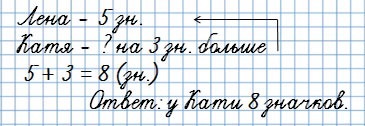 Лена - 5 зн.
Катя - ? на 3 зн. больше
5 + 3 = 8 (зн.)
Ответ: у Кати 8 значков.